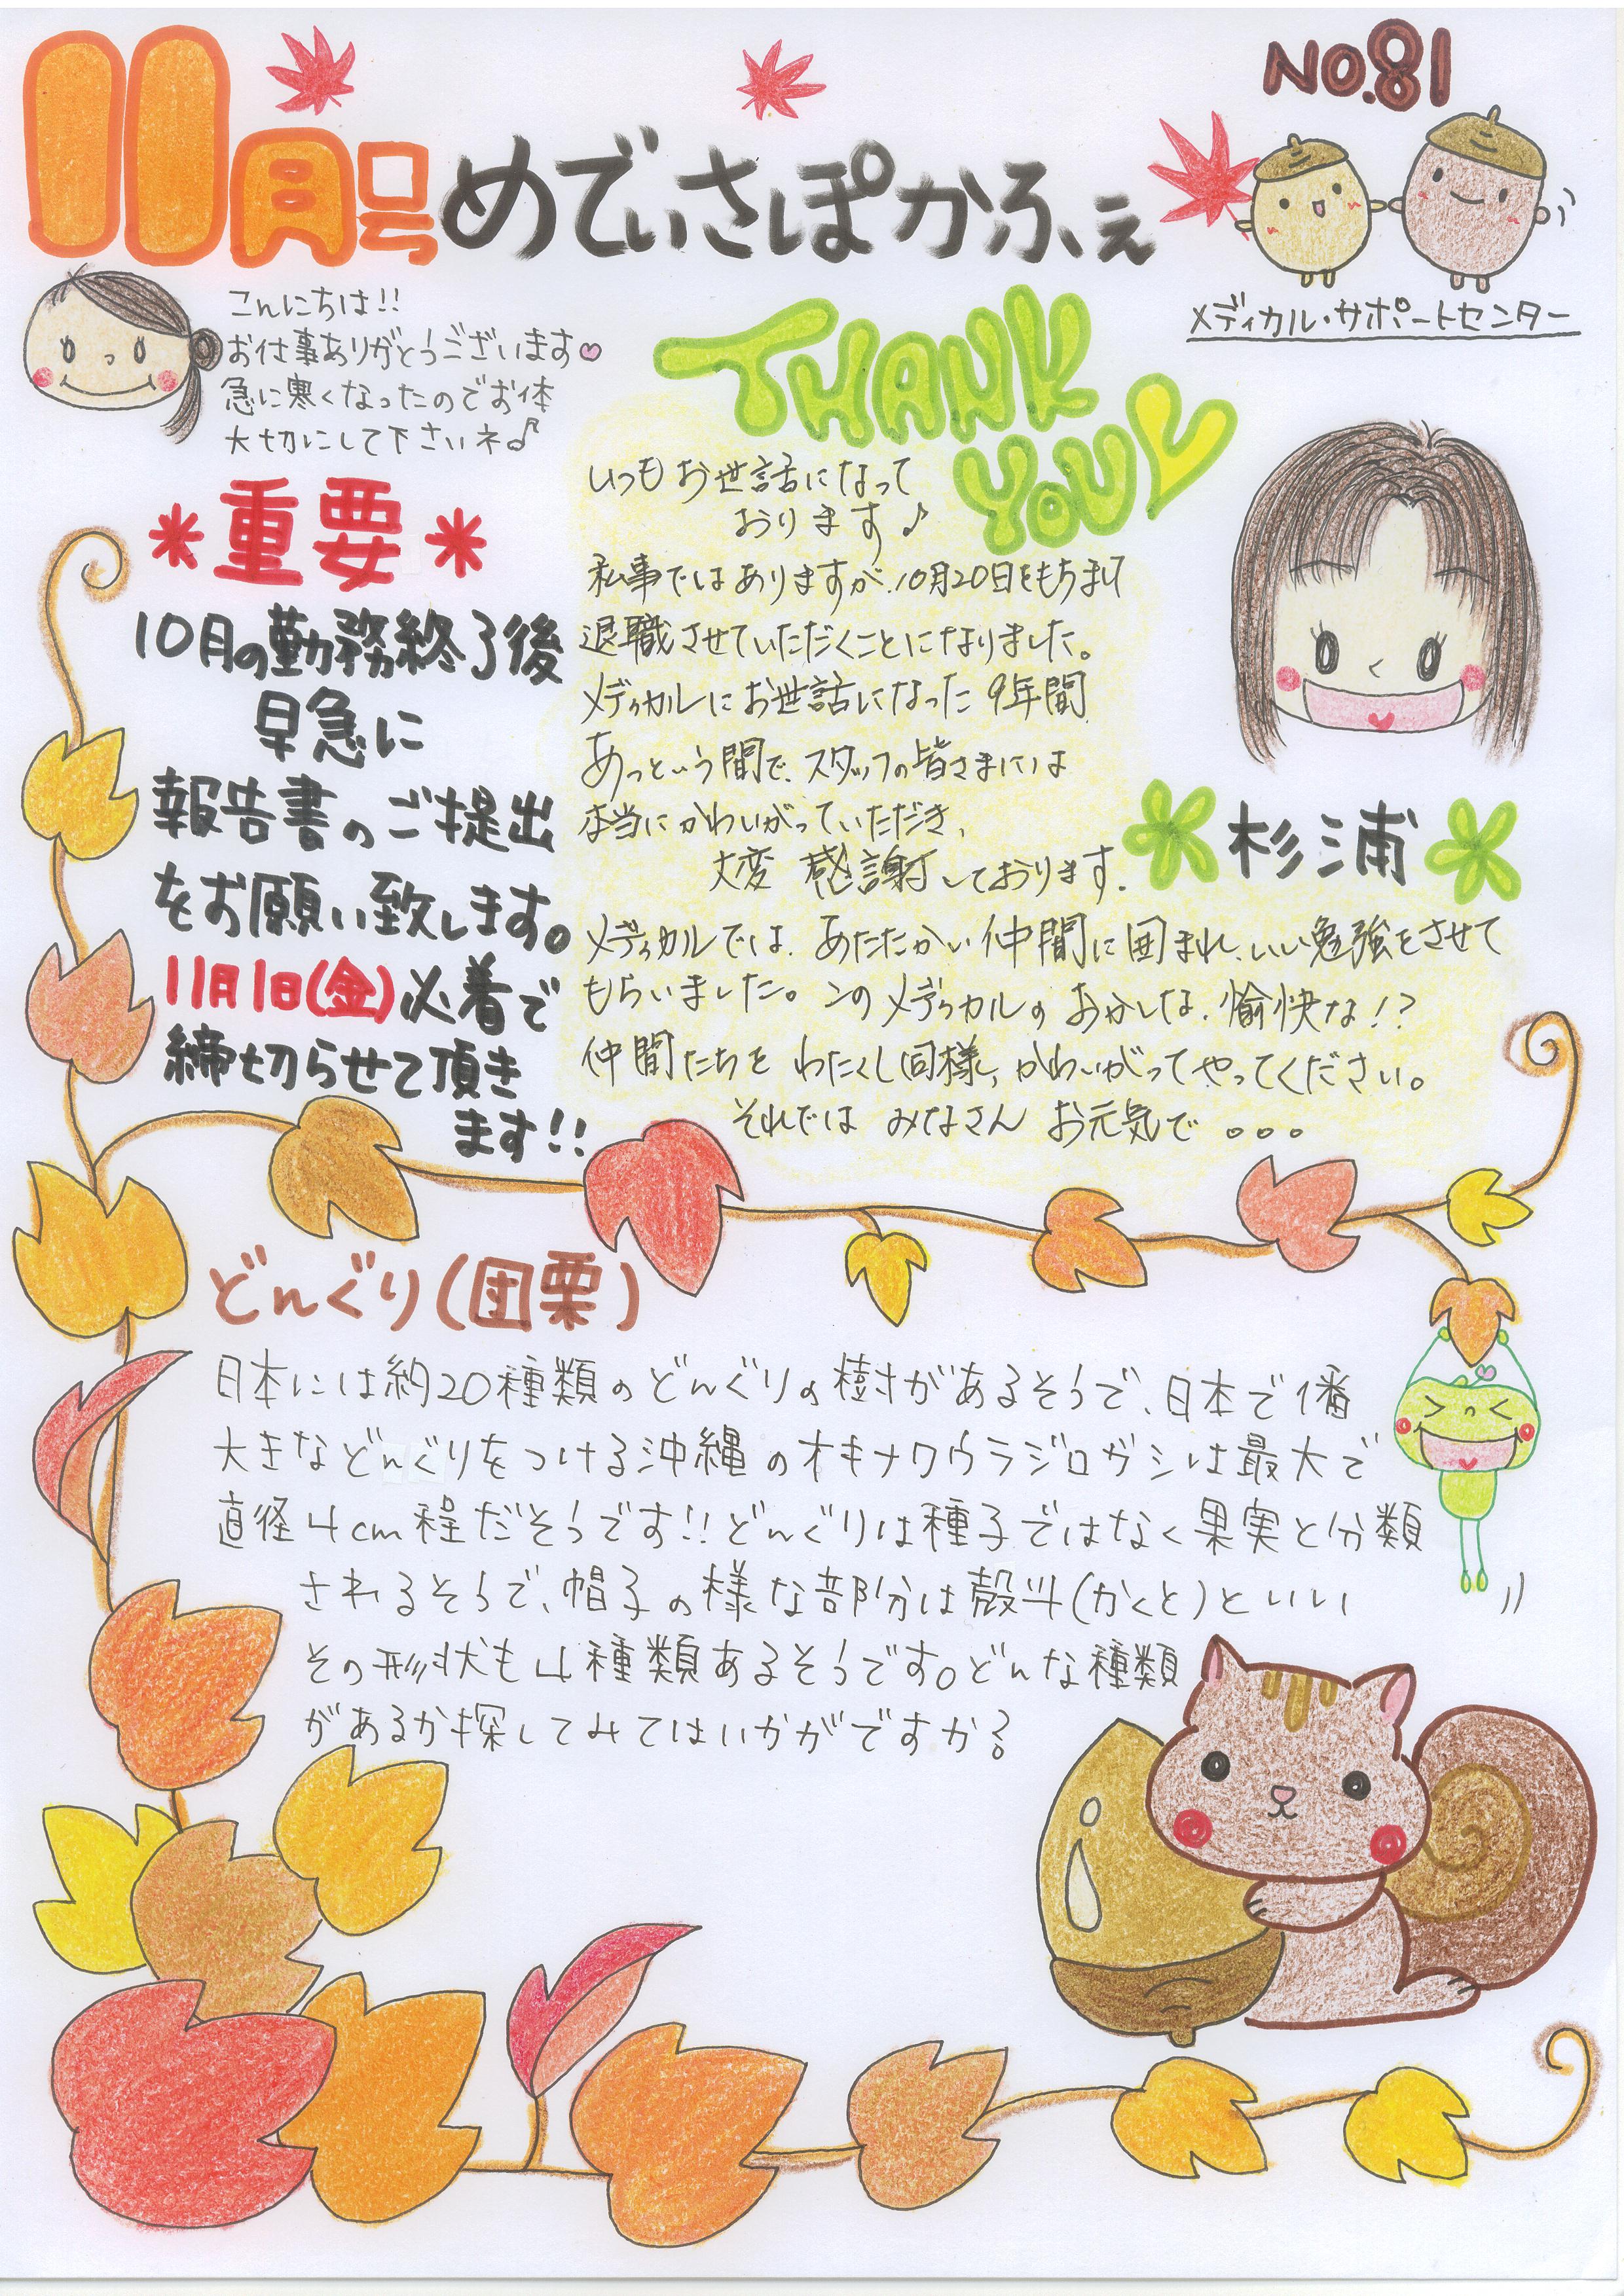 11月号 めでぃさぽかふぇ
NO.81
メディカル・サポートセンター
こんにちは!!
お仕事ありがとうございます
急に寒くなったのでお体
大切にして下さいネ♪
＊重要＊
10月の勤務終了後
早急に
報告書のご提出
をお願い致します。
11月1日(金)必着で
締切らせて頂き
ます!!
THANK
YOU
いつもお世話になって
おります♪
私事ではありますが、10月20日をもちまして
退職させていただくことになりました。
メディカルにお世話になった9年間
あっという間で、スタッフの皆さまには
本当にかわいがっていただき、
大変 感謝しております。
メディカルでは、あたたかい仲間に囲まれ、いい勉強をさせて
もらいました。このメディカルのおかしな、愉快な!?
仲間たちを わたくし同様、かわいがってやってください。
それでは みなさん お元気で 。。。
杉浦
どんぐり(団栗)
日本には約20種類のどんぐりの樹があるそうで、日本で1番
大きなどんぐりをつける沖縄のオキナワウラジロガシは最大で
直径4cm程だそうです!!どんぐりは種子ではなく果実と分類
されるそうで、帽子の様な部分は殻斗(かくと)といい
その形状も4種類あるそうです。どんな種類
があるか探してみてはいかがですか?